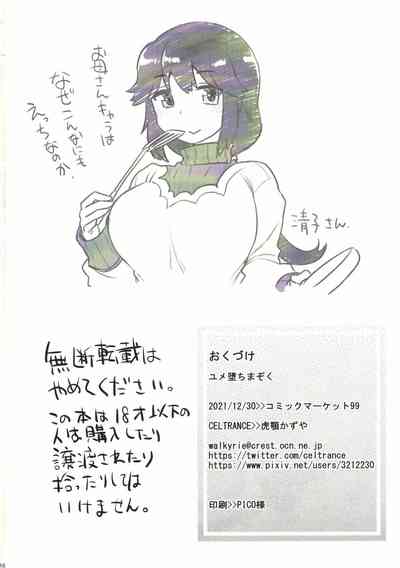 お母さんキャラは
なぜこんなにも
えっちなのか.
清子さん.
無断転載は
やめてください。
この本は18才以下の
人は購入したり
譲渡されたり
拾ったりしては
いけません。
おくづけ
ユメ堕ちまぞく
2021/12/30>>コミックマーケット99
CELTRANCE>>虎顎かずや
walkyrie@crest.ocn.ne.jp
https://twitter.com/celtrance
https://www.pixiv.net/users/3212230
印刷>>PICO様